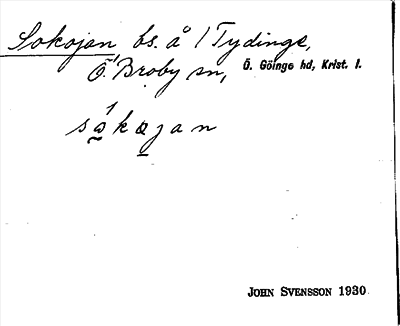 Sokojan, bs. å 1 Tydinge,
Ö. Broby sn, Ö. Göinge hd, Krist. l.
sòkojan
JOHN SVENSSON 1930